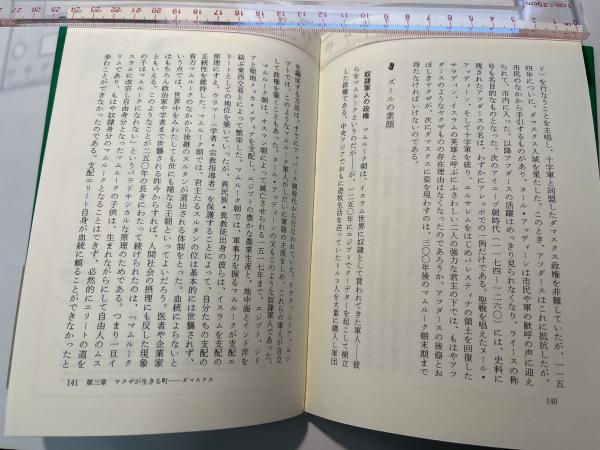 ド）を行なうことを主唱し、十字軍と同盟したダマスクス政権を非難していたが、一一五
四年について、ダマスクス入城を果たした。このとき、アフダースはこれに抵抗したが、
市民のなかから手引するものがあり、ヌール・アッディーンは市民や軍の歓呼の声に迎え
られて、市内に入った。以降アフダースの活躍はめっきり見られなくなり、ライースの称
号も名目的なものとなった。次のアイユーブ朝時代（一一七四―一二六〇）には、史料に
残されたアフダースの名は、わずかにアレッポでの一例だけである。聖戦を唱えたヌール・
アッディーン、そして十字軍を破り、エルサレムをはじめパレスティナの領土を回復した
サラディン、イスラムの英雄と呼ぶにふさわしい二人の強力な君主の下では、もはやアフ
ダースのようなヤクザものの存在理由はなくなったのであろうか。アフダースの後裔とお
ぼしきヤクザが、次にダマスクスに姿を現わすのは、三〇〇年後のマムルーク朝末期まで
待たなければいけないのである。
ズールの素顔
奴隷軍人の政権　マムルーク朝は、イスラム世界に奴隷として買われてきた軍人――彼
らをマムルークというのだが――が、一二五〇年にエジプトでクーデターを起こして樹立
した政権である。中央アジアでおもに遊牧生活を送っていたトルコ人を大量に購入し軍団
140
を編成する方法は、すでにアッバース朝時代から行なわれていた。イラク・シリア・エジ
プトでは、このようなマムルーク軍人がしだいに軍隊の主流をしめ、これらの軍人が自立
して政権を築くこともあった。ヌール・アッディーンの父もこのような奴隷軍人であった。
マムルーク朝は、オスマン朝によって滅亡させられる一五一七年まで、エジプト、シリ
アと聖地メッカ、メディナを支配し、エジプトの豊かな農業生産と、地中海とインド洋を
結ぶ東西交易とによって繁栄した。マムルーク朝では、軍事力を握るマムルークが支配エ
リートとしての地位を築いていったが、異民族・異教徒出身の彼らは、イスラムを支配の
原理にすえ、ウラマー（学者・宗教指導者）を保護することによって、自分たちの支配の
正統性を維持した。マムルーク朝では、君主たるスルタンの位は基本的には世襲されず、
有力マムルークのなかから後継のスルタンが選出される体制をとった。血統によらないと
いう点では、世界中をみわたしても世にも稀なる王朝といってよいだろう。医者や企業家
はもちろん政治家や学者まで世襲される昨今からすれば、人間社会の摂理にも反した現象
ともいえる。このようなことが二五〇年の長きにわたって続けられたのは、「マムルーク
の子はマムルークになれない」というパラドキシカルな原理のためである。つまり一旦イ
スラムに改宗し自由身分となったマムルークの子供は、生まれながらにして自由人のムス
リムであり、もはや奴隷身分のマムルークとなることはできず、必然的にエリートの道を
歩むことができなかったのである。支配エリート自身が血統に頼ることができなかったと
141　第三章　ヤクザが生きる町――ダマスクス